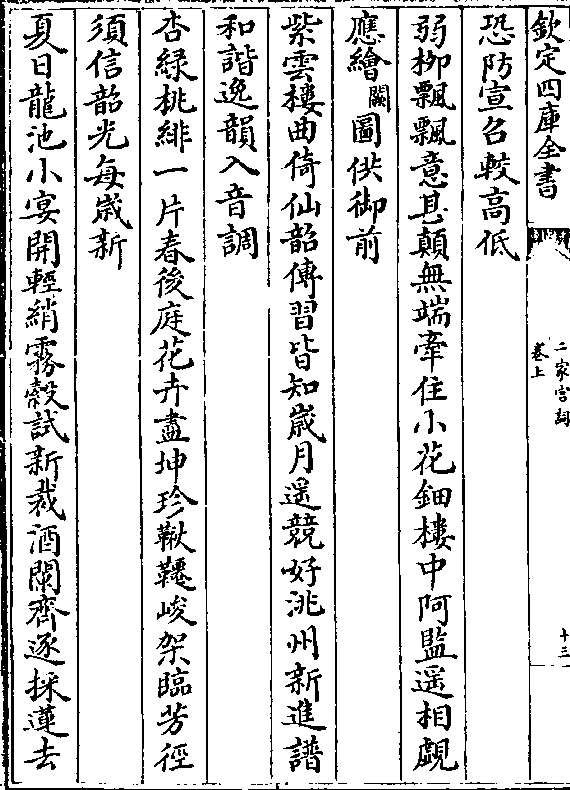 欽定四庫全書
二家宮詞
卷上
十三
恐防宣召較高低
弱栁飄飄意甚顛無端牽住小花鈿樓中阿監遥相覷
應繪闕圖供御前
紫雲樓曲倚仙韶傳習皆知歲月遥競好洮州新進譜
和諧逸韻入音調
杏緑桃緋一片春後庭花卉盡坤珍鞦韆峻架臨芳徑
須信韶光每歲新
夏日龍池小宴開輕綃霧縠試新裁酒闌齊逐採蓮去